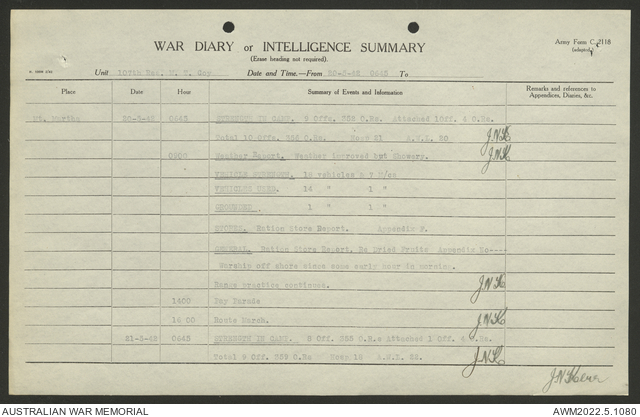 Army Form C. 2118
(adapted)
WAR DIARY or INTELLIGENCE SUMMARY
(Erase heading not required).
Unit 107th M. T. Coy Date and Time.—From 20-5-42 0645 To
Place Date Hour Summary of Events and Information Remarks and references to
Appendices, Diaries, &c.
Mt. Martha 20-5-42 0645 STRENGTH IN CAMP. 9 Offs. 355 O.Rs. Attached 1Off. 4 O.Rs.
Total 10 Offs. 359 O.Rs. Hosp 21 A.W.L. 20 J.N.K.
0900 Weather Report. Weather improved but Showery. J.N.K.
VEHICLE STRENGTH. 16 vehicles & 7 M/cs
VEHICLES USED. 14 " 1 "
GROUNDED. 1 " 1 "
STORES. Ration Store Report. Appendix F.
GENERAL. Ration Store Report. Re Dried Fruits Appendix
Warship off shore since some early hour in morning.
Range practice continued. J.N.K.
1400 Pay Parade
Route March. J.N.K.
21-5-42 0645 STRENGTH IN CAMP. 8 Off. 355 O.R.s Attached 1 Off. 4 O.Rs.
Total 9 Off. 359 O.Rs A.W.L. J.N.K.
AUSTRALIAN WAR MEMORIAL AWM2022.5.1080